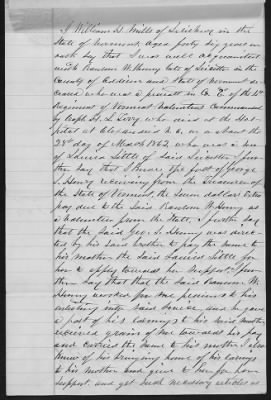 I William D. Mills of Leicester in the
State of Vermont, aged forty six years on
oath say that I was well acquainted
with Ransom W. Henry late of Leicester in the
County of Addison and State of Vermont de-
ceased who was a private in Co. of the
Regiment of Vermont Volunteers Commanded
by Capt. who died at the Hos-
pital at Alexandria on or about the
28th day of March 1862, who was a son
of Louisa Little of said Leicester. I fur-
ther say that I know the fact of George
S. Henry receiving from the Treasurer of
the State of Vermont, the seven dollars State
pay due to the said Ransom W. Henry as
a Volunteer from the State, I further say
that the said Geo. S. Henry was direc-
ted by his said brother to pay the same to
his Mother the said Louisa Little for
her to apply towards her support. I fur-
ther say that the said Ransom W.
Henry worked for me previous to his
enlisting into said service and he gave
a part of his earnings to his said mother
received grain of me towards his pay
and carried the same to his mother I also
knew of his bringing home of his earnings
to his Mother and give to her for her
support, and get such necessary articles as